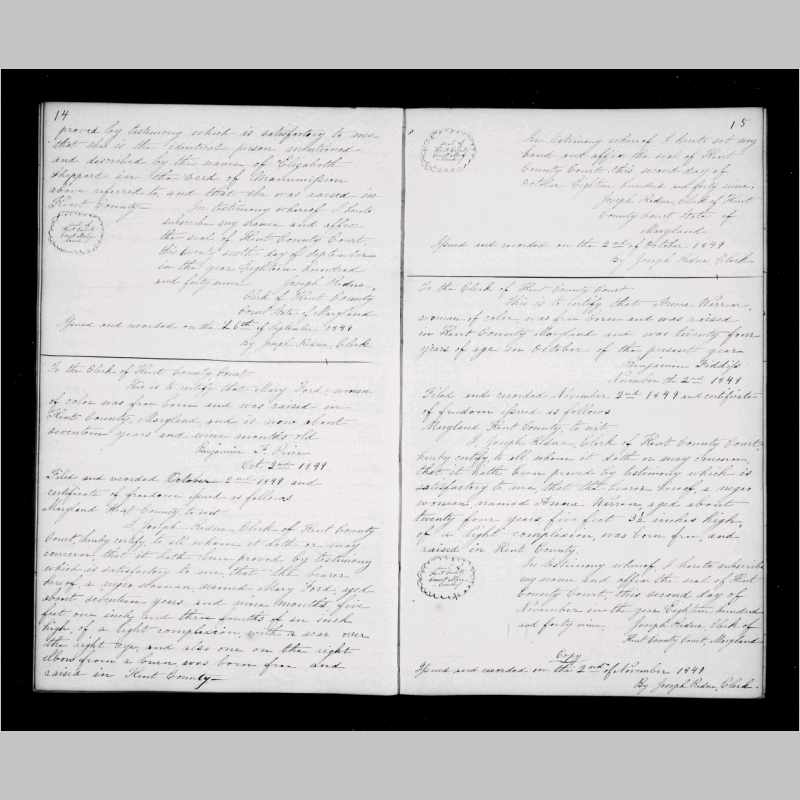 14
proved by testimony which is satisfactory to me
that she is the identical person mentioned
and described by the name of Elizabeth
Sheppard in the Deed of Manumission
above referred to, and that she was raised in
Kent County. In testimony whereof I hereto
subscribe my name and affix
the seal of Kent County Court,
this twenty sixth day of September
in the year Eighteen hundred
and forty nine Joseph
Clerk of Kent County
Court State of Maryland
Issued and recorded on the 26th of September 1849
By Joseph Clerk
To the Clerk of Kent County Court
This is to certify that Mary Ford, woman
of color was free born and was raised in
Kent County, Maryland and is now about
seventeen years and nine months old
Benjamin F.
Oct 2nd 1849
Filed and recorded October 2nd 1849 and
certificate of freedom issued as follows
Maryland Kent County to wit
I Joseph Clerk of Kent County
Court, hereby certify to all whom it doth or may
concern, that it hath been proved by testimony
which is satisfactory to me, that the bearer
hereof, a negro woman named Mary Ford, aged
about seventeen years and nine months, five
feet one inch and three fourths of an inch
high, of a light complexion, with a scar over
the right Eye, and also one on the right
elbow from a burn, was born free and
raised in Kent County
15
In testimony whereof I hereto set my
hand and affix the seal of Kent
County Court this second day of
October Eighteen hundred and forty nine,
Joseph Clerk of Kent
County Court State of
Maryland
Issued and recorded on the 2nd of October 1849
By Joseph Clerk
To the Clerk of Kent County Court
This is to certify that Anna Warren,
woman of color, was free born and was raised
in Kent County Maryland and was twenty four
years of age in October of the present year
Benjamin
November the 2nd 1849
Filed and recorded November 2nd 1849 and certificate
of freedom issued as follows
Maryland Kent County, to wit.
I, Joseph Clerk of Kent County Court,
hereby certify to all whom it doth or may concern,
that it hath been proved by testimony which is
satisfactory to me, that the bearer hereof, a negro
woman named Anna Warren, aged about
twenty four years five feet 3½ inches high,
of a light complexion, was born free, and
raised in Kent County.
In testimony whereof, I hereto subscribe
my name and affix the seal of Kent
County Court, this second day of
November in the year Eighteen hundred
and forty nine. Joseph Clerk of
Kent County Court, Maryland
Copy
Issued and recorded on the 2nd of November 1849
By Joseph Clerk.